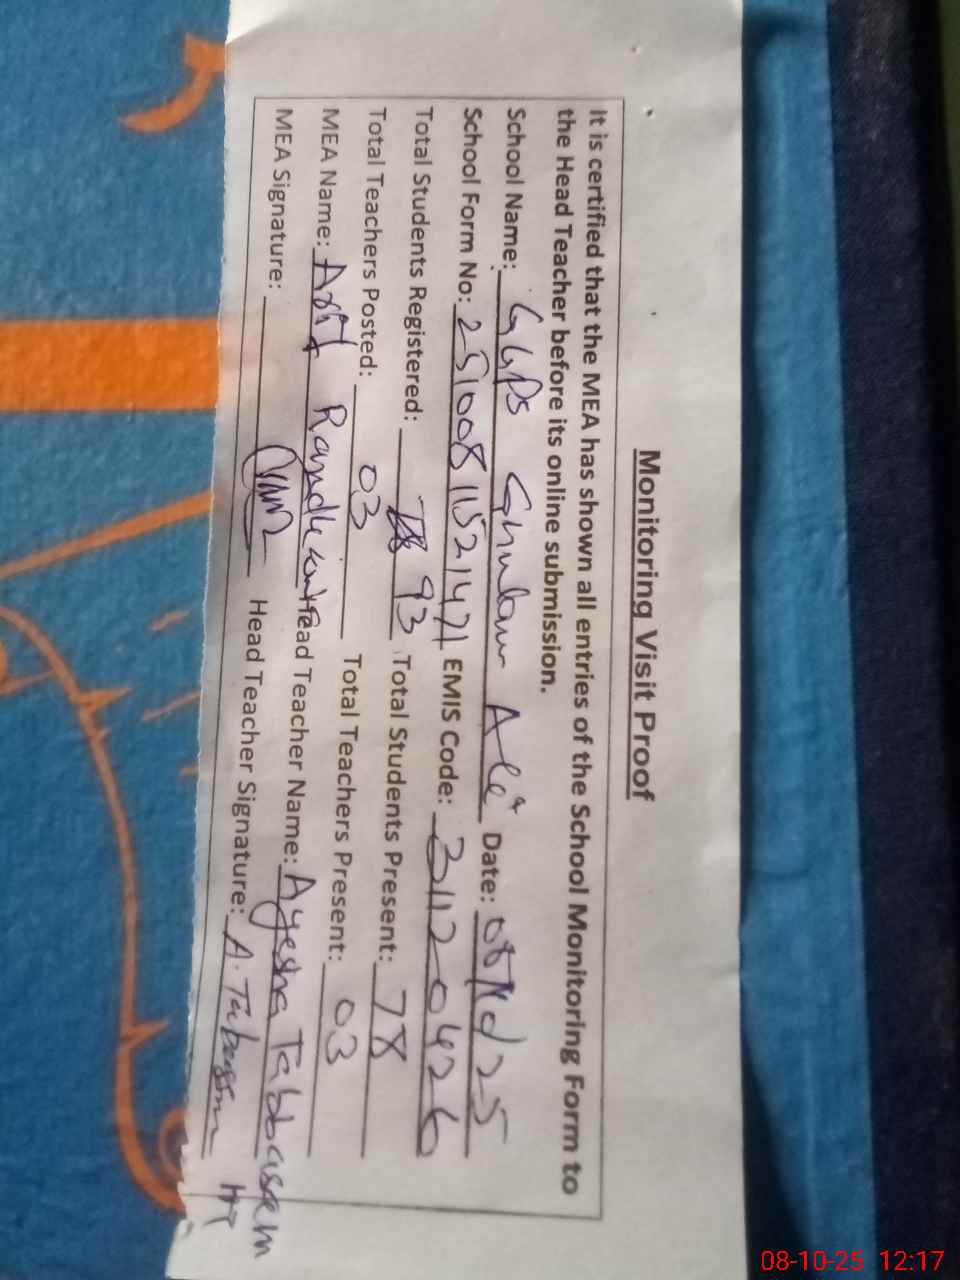 Monitoring Visit Proof
It is certified that the MEA has shown all entries of the School Monitoring Form to
the Head Teacher before its online submission.
School Name: GGPS Ghulam Ali Date: 08 25
School Form No: 251008 11521471 EMIS Code: 31120426
Total Students Registered: 93 Total Students Present: 78
Total Teachers Posted: 03 Total Teachers Present: 03
MEA Name: Head Teacher Name: Ayesha Tabbasem
MEA Signature: Head Teacher Signature: A. HT
08-10-25 12:17